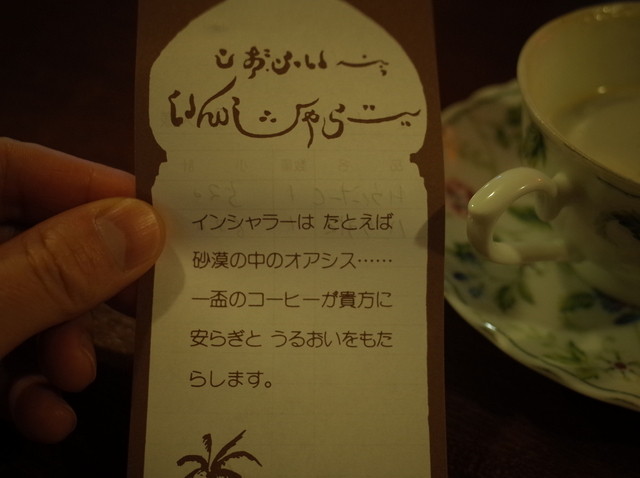 こおふぃい
いんしゃらー
インシャラーは たとえば
砂漠の中のオアシス……
一盃のコーヒーが貴方に
安らぎと うるおいをもた
らします。